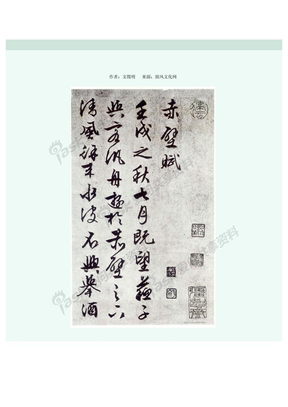 作者：文徵明 来源：国风文化网
赤壁賦
壬戌之秋七月既望蘇子
與客汎舟遊於赤壁之下
清風徐来水波不興舉酒